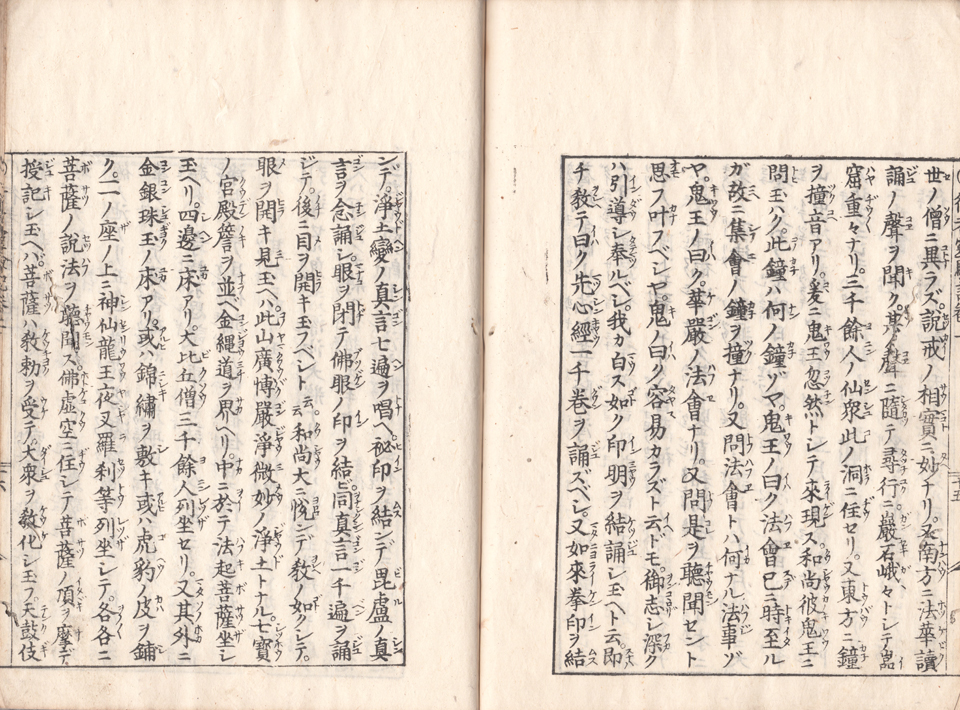 世ノ僧ニ異ラズ。説戒ノ相實ニ妙ナリ。又南方ニ法華讀
誦ノ聲ヲ聞ク。其ノ聲ニ隨テ尋行ニ。巖石峨々トシテ
窟重々ナリ。三千餘人ノ仙衆此ノ洞ニ住セリ。又東方ニ鐘
ヲ撞音アリ。爰ニ鬼王忽然トシテ來現ス。和尚彼鬼王ニ
問玉ハク。此鐘ハ何ノ鐘ゾヤ。鬼王ノ曰ク法會已ニ時至ル
ガ故ニ集會ノ鐘ヲ撞ナリ。又問法會トハ何ナル法事ゾ
ヤ。鬼王ノ曰ク。華嚴ノ法會ナリ。又問是ヲ聽聞セント
思フ叶フベシヤ。鬼ノ曰ク容易カラズト云ドモ。御志シ深ク
ハ引導シ奉ルベシ。我カ白ス如ク印明ヲ結誦シ玉ヘト云。即
チ教テ曰ク先心經一千卷ヲ誦ズベシ。又如來拳印ヲ結
ンデ。淨土變ノ真言七遍ヲ唱ヘ。祕印ヲ結ンデ毘盧ノ真
言ヲ念誦シ。眼ヲ閉テ佛眼ノ印ヲ結ビ同真言一千遍ヲ誦
ジテ。後ニ目ヲ開キ玉フベシト云云。和尚大ニ悦ンデ教ノ如クシテ。
眼ヲ開キ見玉ヘバ。此山廣博嚴淨微妙ノ淨土トナル。七寶
ノ官殿簷ヲ並ベ金縄道ヲ界ヘリ。中ニ於テ法起菩薩坐シ
玉ヘリ。四邊ニ床アリ大比丘僧三千餘人列坐セリ。又其外ニ
金銀珠玉ノ床アリ。或ハ錦繡ヲ敷キ或ハ虎豹ノ皮ヲ鋪
ク。一ノ座ノ上ニ神仙龍王夜叉羅刹等列坐シテ。各各ニ
菩薩ノ説法ヲ聽聞ス。佛虛空ニ住シテ菩薩ノ頂ヲ摩デ
授記シ玉ヘバ。菩薩ハ教勅ヲ受テ。大衆ヲ教化シ玉フ。天鼓伎